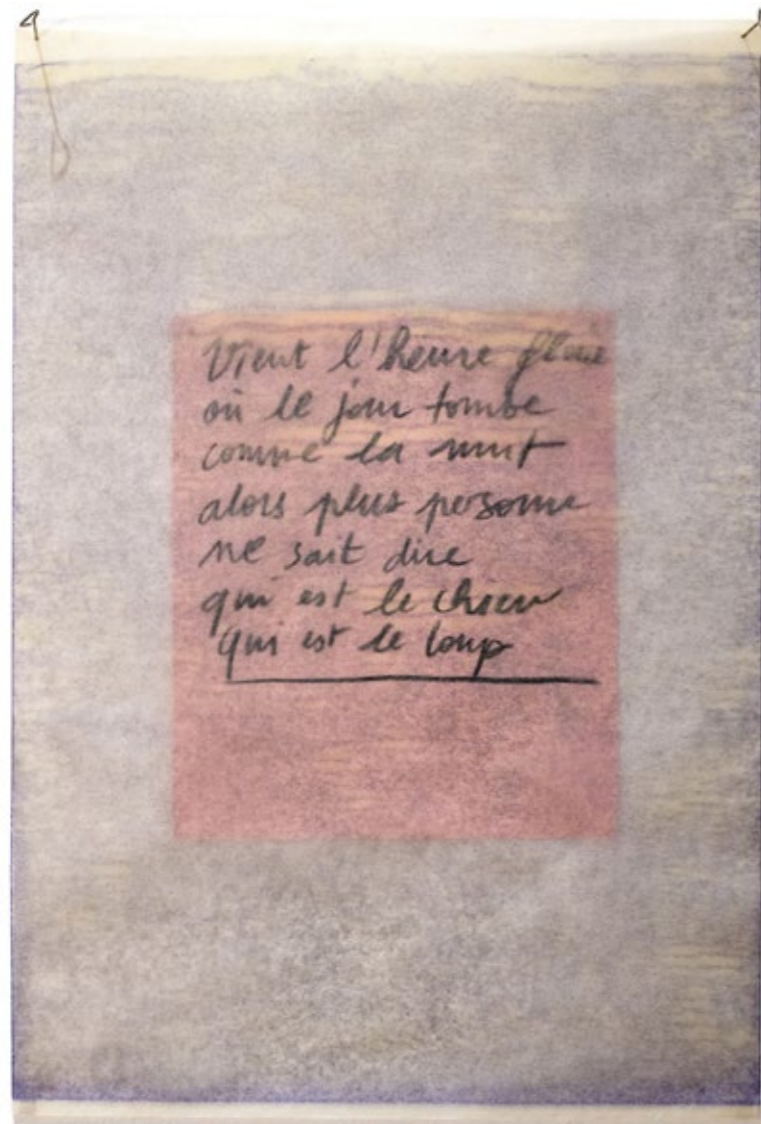 Vient l'heure
où le jour tombe
comme la nuit
alors plus personne
ne sait dire
qui est le chien
qui est le loup